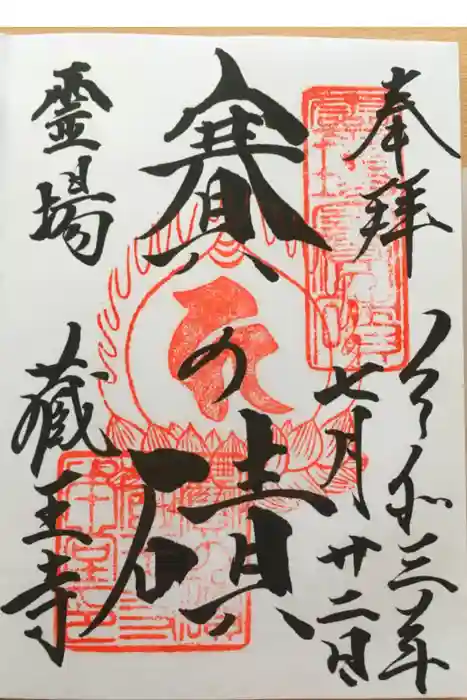 奉拝
令和三年
七月廿二日
賽の磧
霊場
蔵王寺